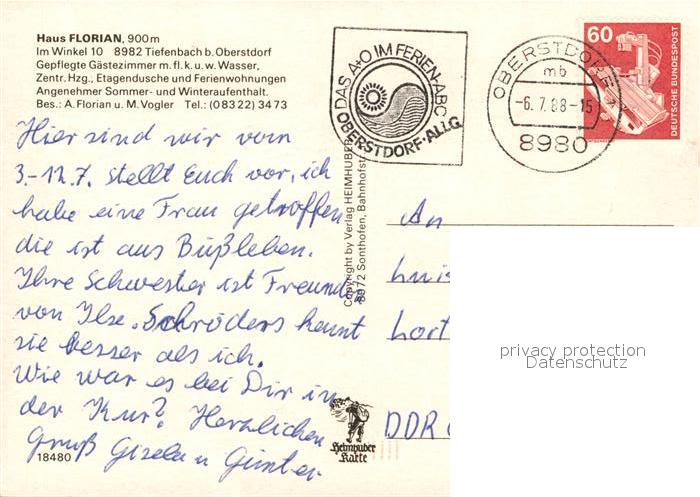 Haus FLORIAN, 900 m
Im Winkel 10 8982 Tiefenbach b. Oberstdorf
Gepflegte Gästezimmer m. fl. k. u. w. Wasser,
Zentr. Hzg., Etagendusche und Ferienwohnungen
Angenehmer Sommer- und Winteraufenthalt.
Bes.: A. Florian u. M. Vogler Tel.: (0 83 22) 34 73
DAS A+O IM FERIEN-ABC
OBERSTDORF·ALLG.
OBERSTDORF
mb
-6.7.88-15
8980
60
DEUTSCHE BUNDESPOST
Hier sind wir vom
3.-17.7. stellt Euch vor, ich
habe eine Frau getroffen
die ist aus Büßleben.
Ihre Schwester ist Freundin
von Ilse. Schröders kennt
sie besser als ich.
Wie war es bei Dir in
der Kur? Herzlichen
Gruß Gisela u Günter
18480
Copyright by Verlag HEIMHUBER
8972 Sonthofen, Bahnhofst
Heimhuber
Karte
An
Lui
Lort
DDR
privacy protection
Datenschutz